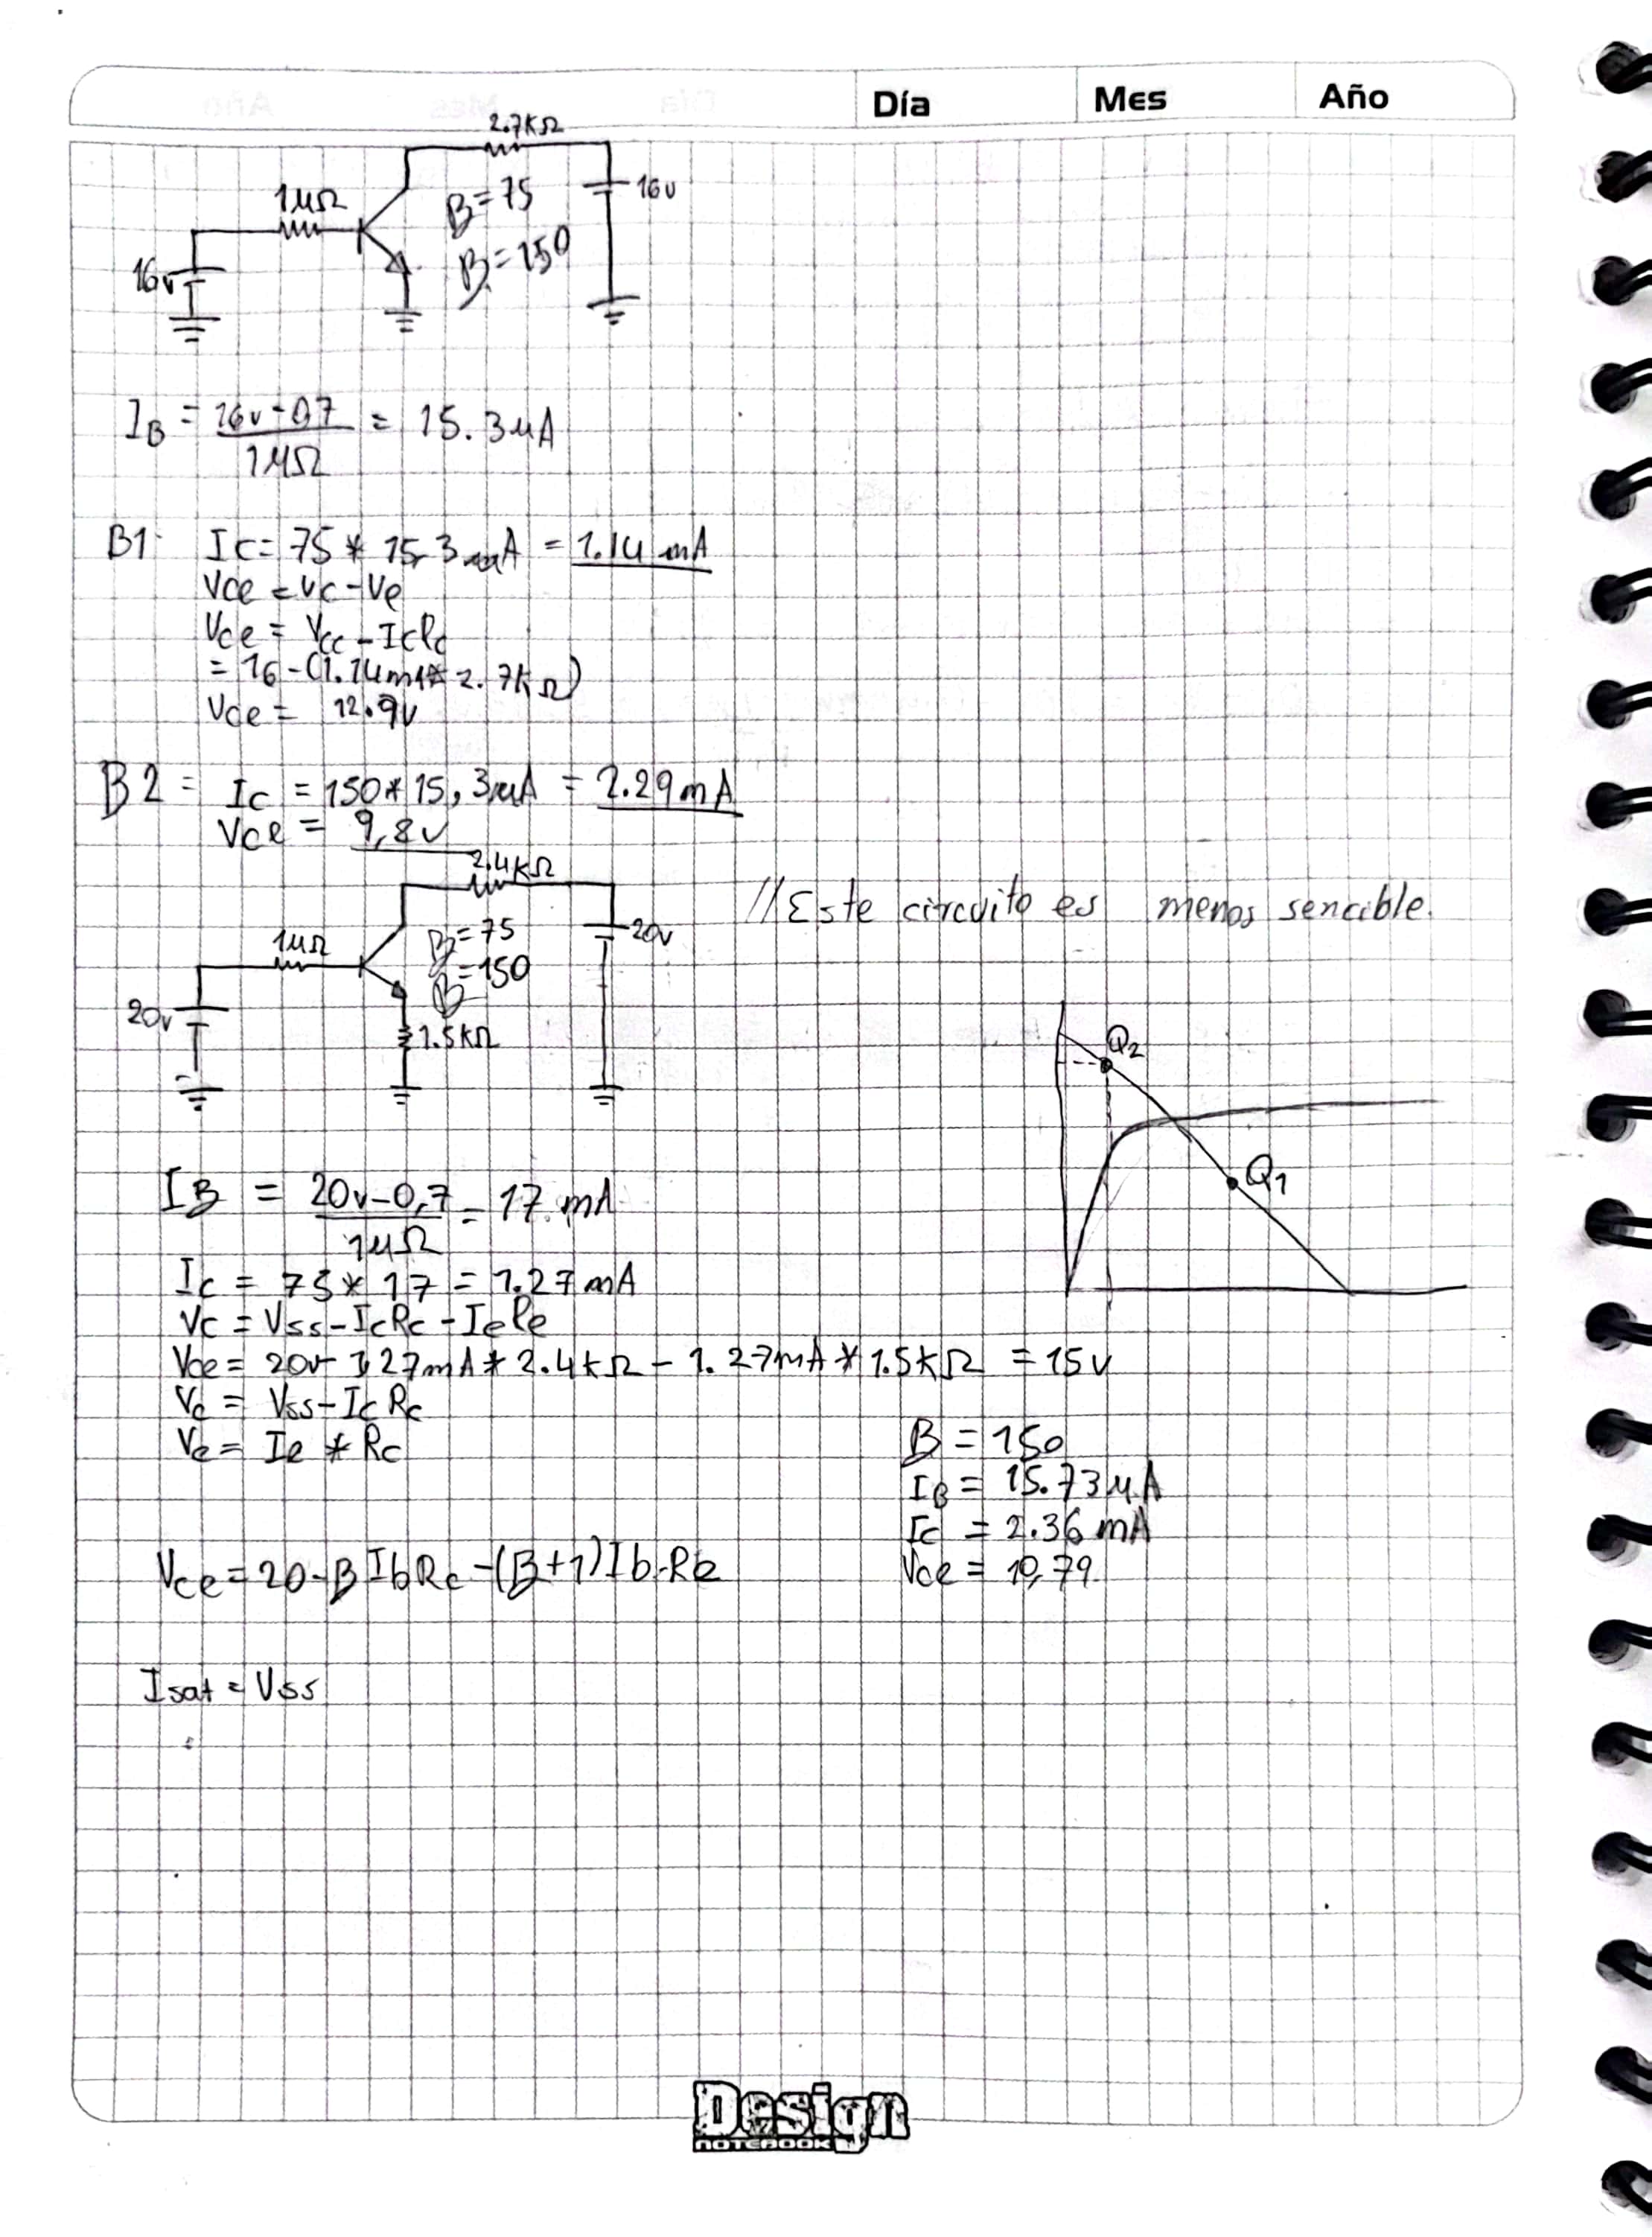 Día Mes Año
2.7KΩ
1MΩ
B=75
16v
B=150
16v
IB = 16v-0,7 = 15.3μA
1MΩ
B1: Ic= 75 * 15,3μA = 1.14 mA
Vce = Vc-Ve
Vce = Vcc - IcRc
= 16-(1.14mA*2.7kΩ)
Vce = 12.9v
B2 = Ic = 150*15,3μA = 2.29mA
Vce = 9,8v
2.4kΩ
//Este circuito es menos sencible.
1MΩ
B=75
20v
B=150
20v
1.5kΩ
Q2
Q1
IB = 20v-0,7 = 17 mA
1MΩ
Ic = 75*17 = 1.27mA
Vc = Vss-IcRc-IeRe
Vce = 20v- 1,27mA*2.4kΩ - 1.27mA*1.5kΩ = 15v
Vc = Vss-IcRc
Ve = Ie * Rc
B = 150
IB = 15.73μA
Ic = 2.36 mA
Vce = 10,79.
Vce = 20-BIbRc-(B+1)Ib.Re
Isat = Vss
Design
NOTEBOOK